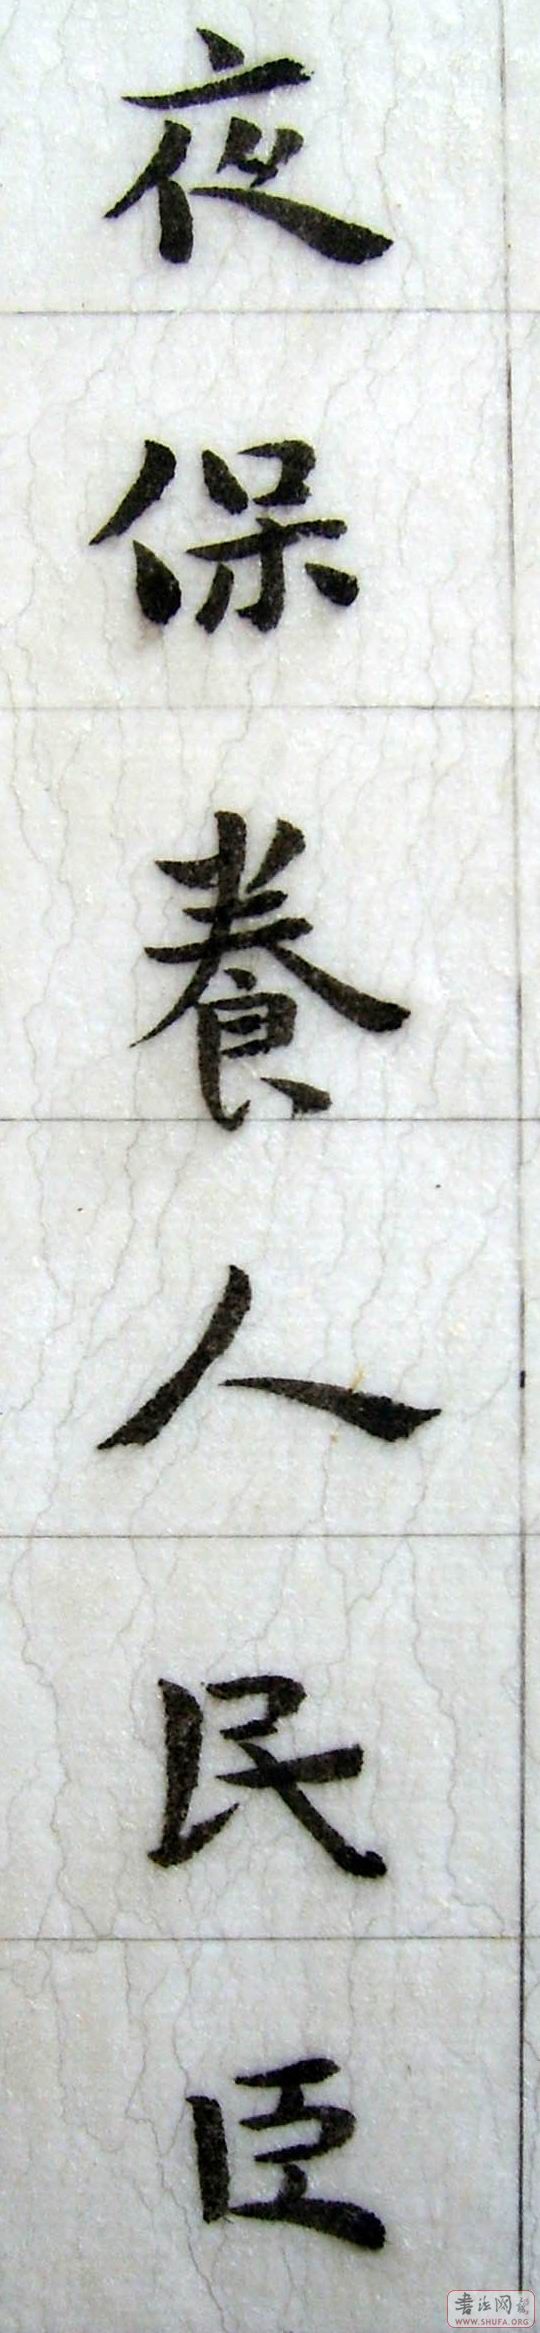 夜保養人民臣
書法网
WWW.SHUFA.ORG